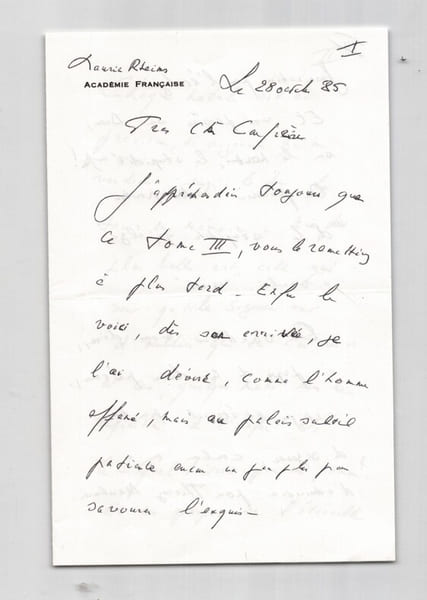 I
Maurice Rheims
ACADÉMIE FRANÇAISE
Le 28 octob 85
Très Cher Confrère
J'appréhendais toujours que
ce tome III, vous le remettiez
à plus tard - Enfin le
voici, dès son arrivée, je
l'ai dévoré, comme l'homme
affamé, mais au palais subtil
patiente encore un peu plus pour
savourer l'exquis -